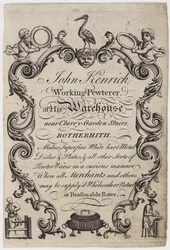 John Kenrick
Working Pewterer,
at His Warehouse
near Cherry Garden Stairs,
ROTHERHITH.
Makes Superfine White hard Metal
Dishes & Plates, & all other Sorts of
Pewter Wares in a curious manner;
Where all Merchants and others
may be supply'd Wholesale or Retail
at Reasonable Rates.